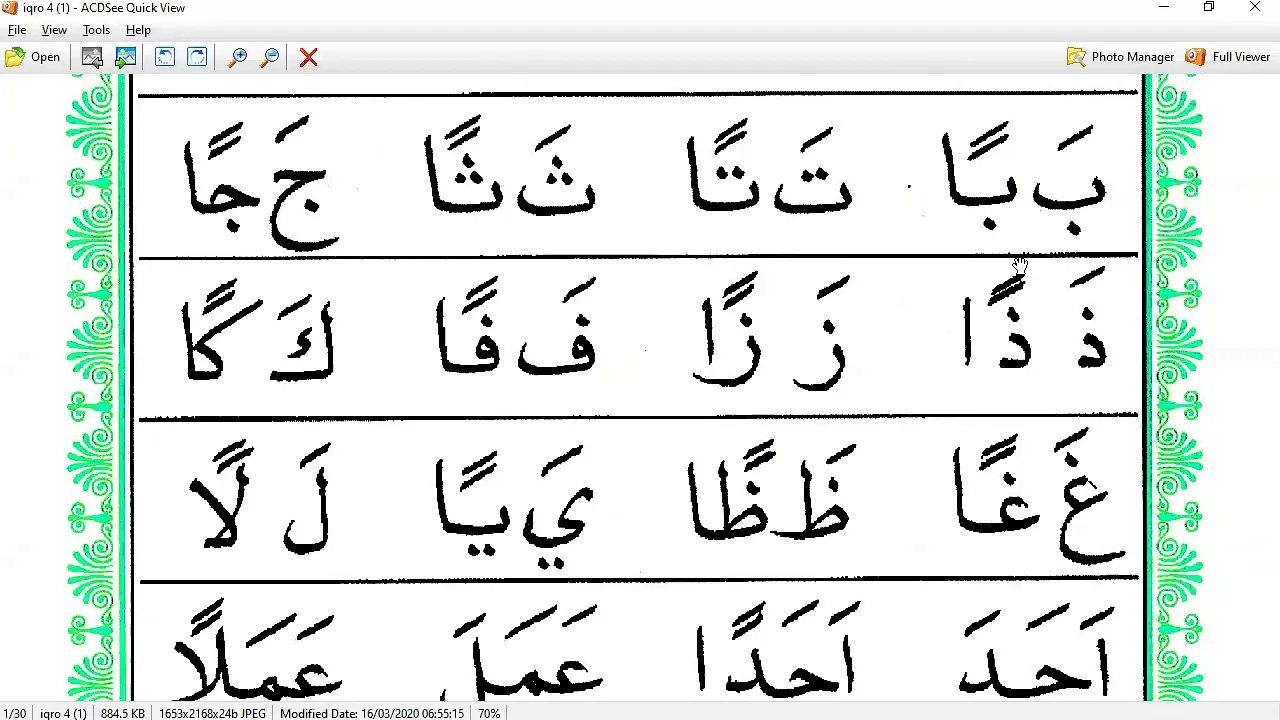 iqro 4 (1) - ACDSee Quick View
File View Tools Help
Open Photo Manager Full Viewer
بَ بًا تَ تًا ثَ ثًا جَ جًا
ذَ ذًا زَ زًا فَ فًا كَ كًا
غَ غًا ظَ ظًا يَ يًا لَ لًا
اَحَدَ اَحَدًا عَمَلَ عَمَلًا
1/30 iqro 4 (1) 884.5 KB 1653x2168x24b JPEG Modified Date: 16/03/2020 06:55:15 70%